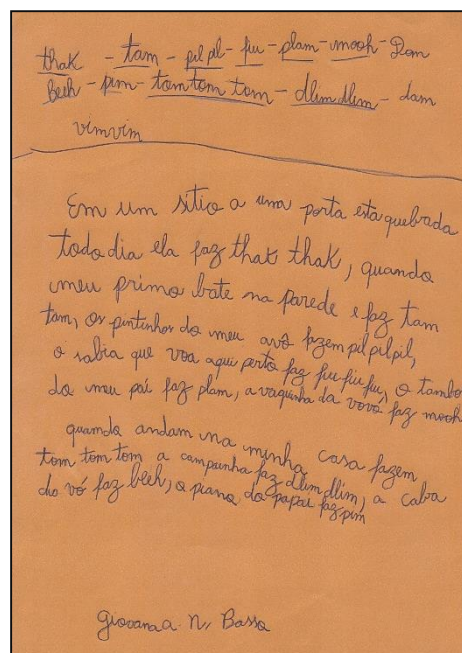 thak - tam - pil pil - fiu - plam - mooh - Dom
beeh - pim - tom tom tom - dlim dlim - dam
vimvim
Em um sitio a uma porta esta quebrada
todo dia ela faz thak thak, quando
meu primo bate na parede e faz tam
tam, os pintinhos do meu avô fazem pil pil pil,
o sabia que voa aqui perto faz fiu fiu fiu, o tambo
do meu pai faz plam, a vaquinha da vovó faz mooh
quando andam na minha casa fazem
tom tom tom a campainha faz dlim dlim, a cabra
do vó faz beeh, o piano do papai faz pim
Giovana a. N. Bassa